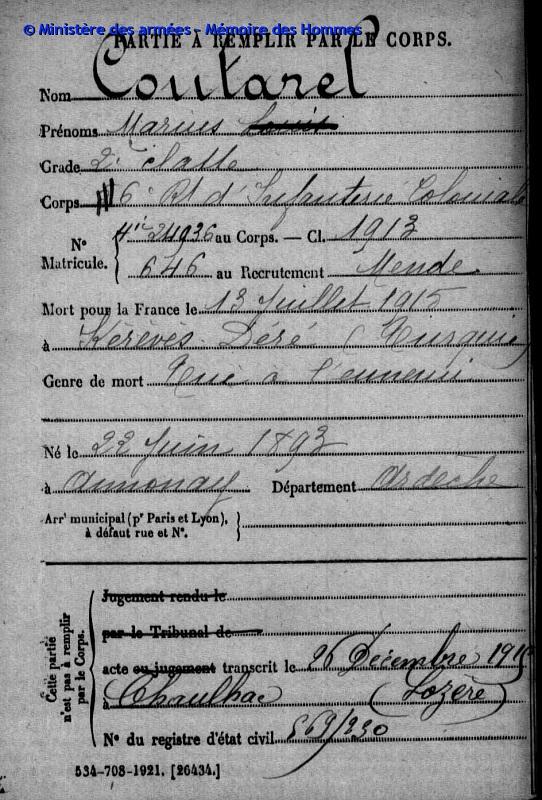 © Ministère des armées - Mémoire des Hommes
PARTIE À REMPLIR PAR LE CORPS.
Nom Coutarel
Prénoms Marius Louis
Grade 2e classe
Corps 6e Rt d'Infanterie Coloniale
N° Matricule. 24936 au Corps. — Cl. 1913
646 au Recrutement Mende
Mort pour la France le 13 Juillet 1915
à Kérévès-Déré (Turquie)
Genre de mort Tué à l'ennemi
Né le 22 Juin 1893
à Annonay Département Ardèche
Arrt municipal (pr Paris et Lyon),
à défaut rue et N°.
Cette partie n'est pas à remplir par le Corps.
Jugement rendu le
par le Tribunal de
acte ou jugement transcrit le 26 Décembre 1915
à Chaulhac (Lozère)
N° du registre d'état civil 869/230
534-708-1921. [26434.]